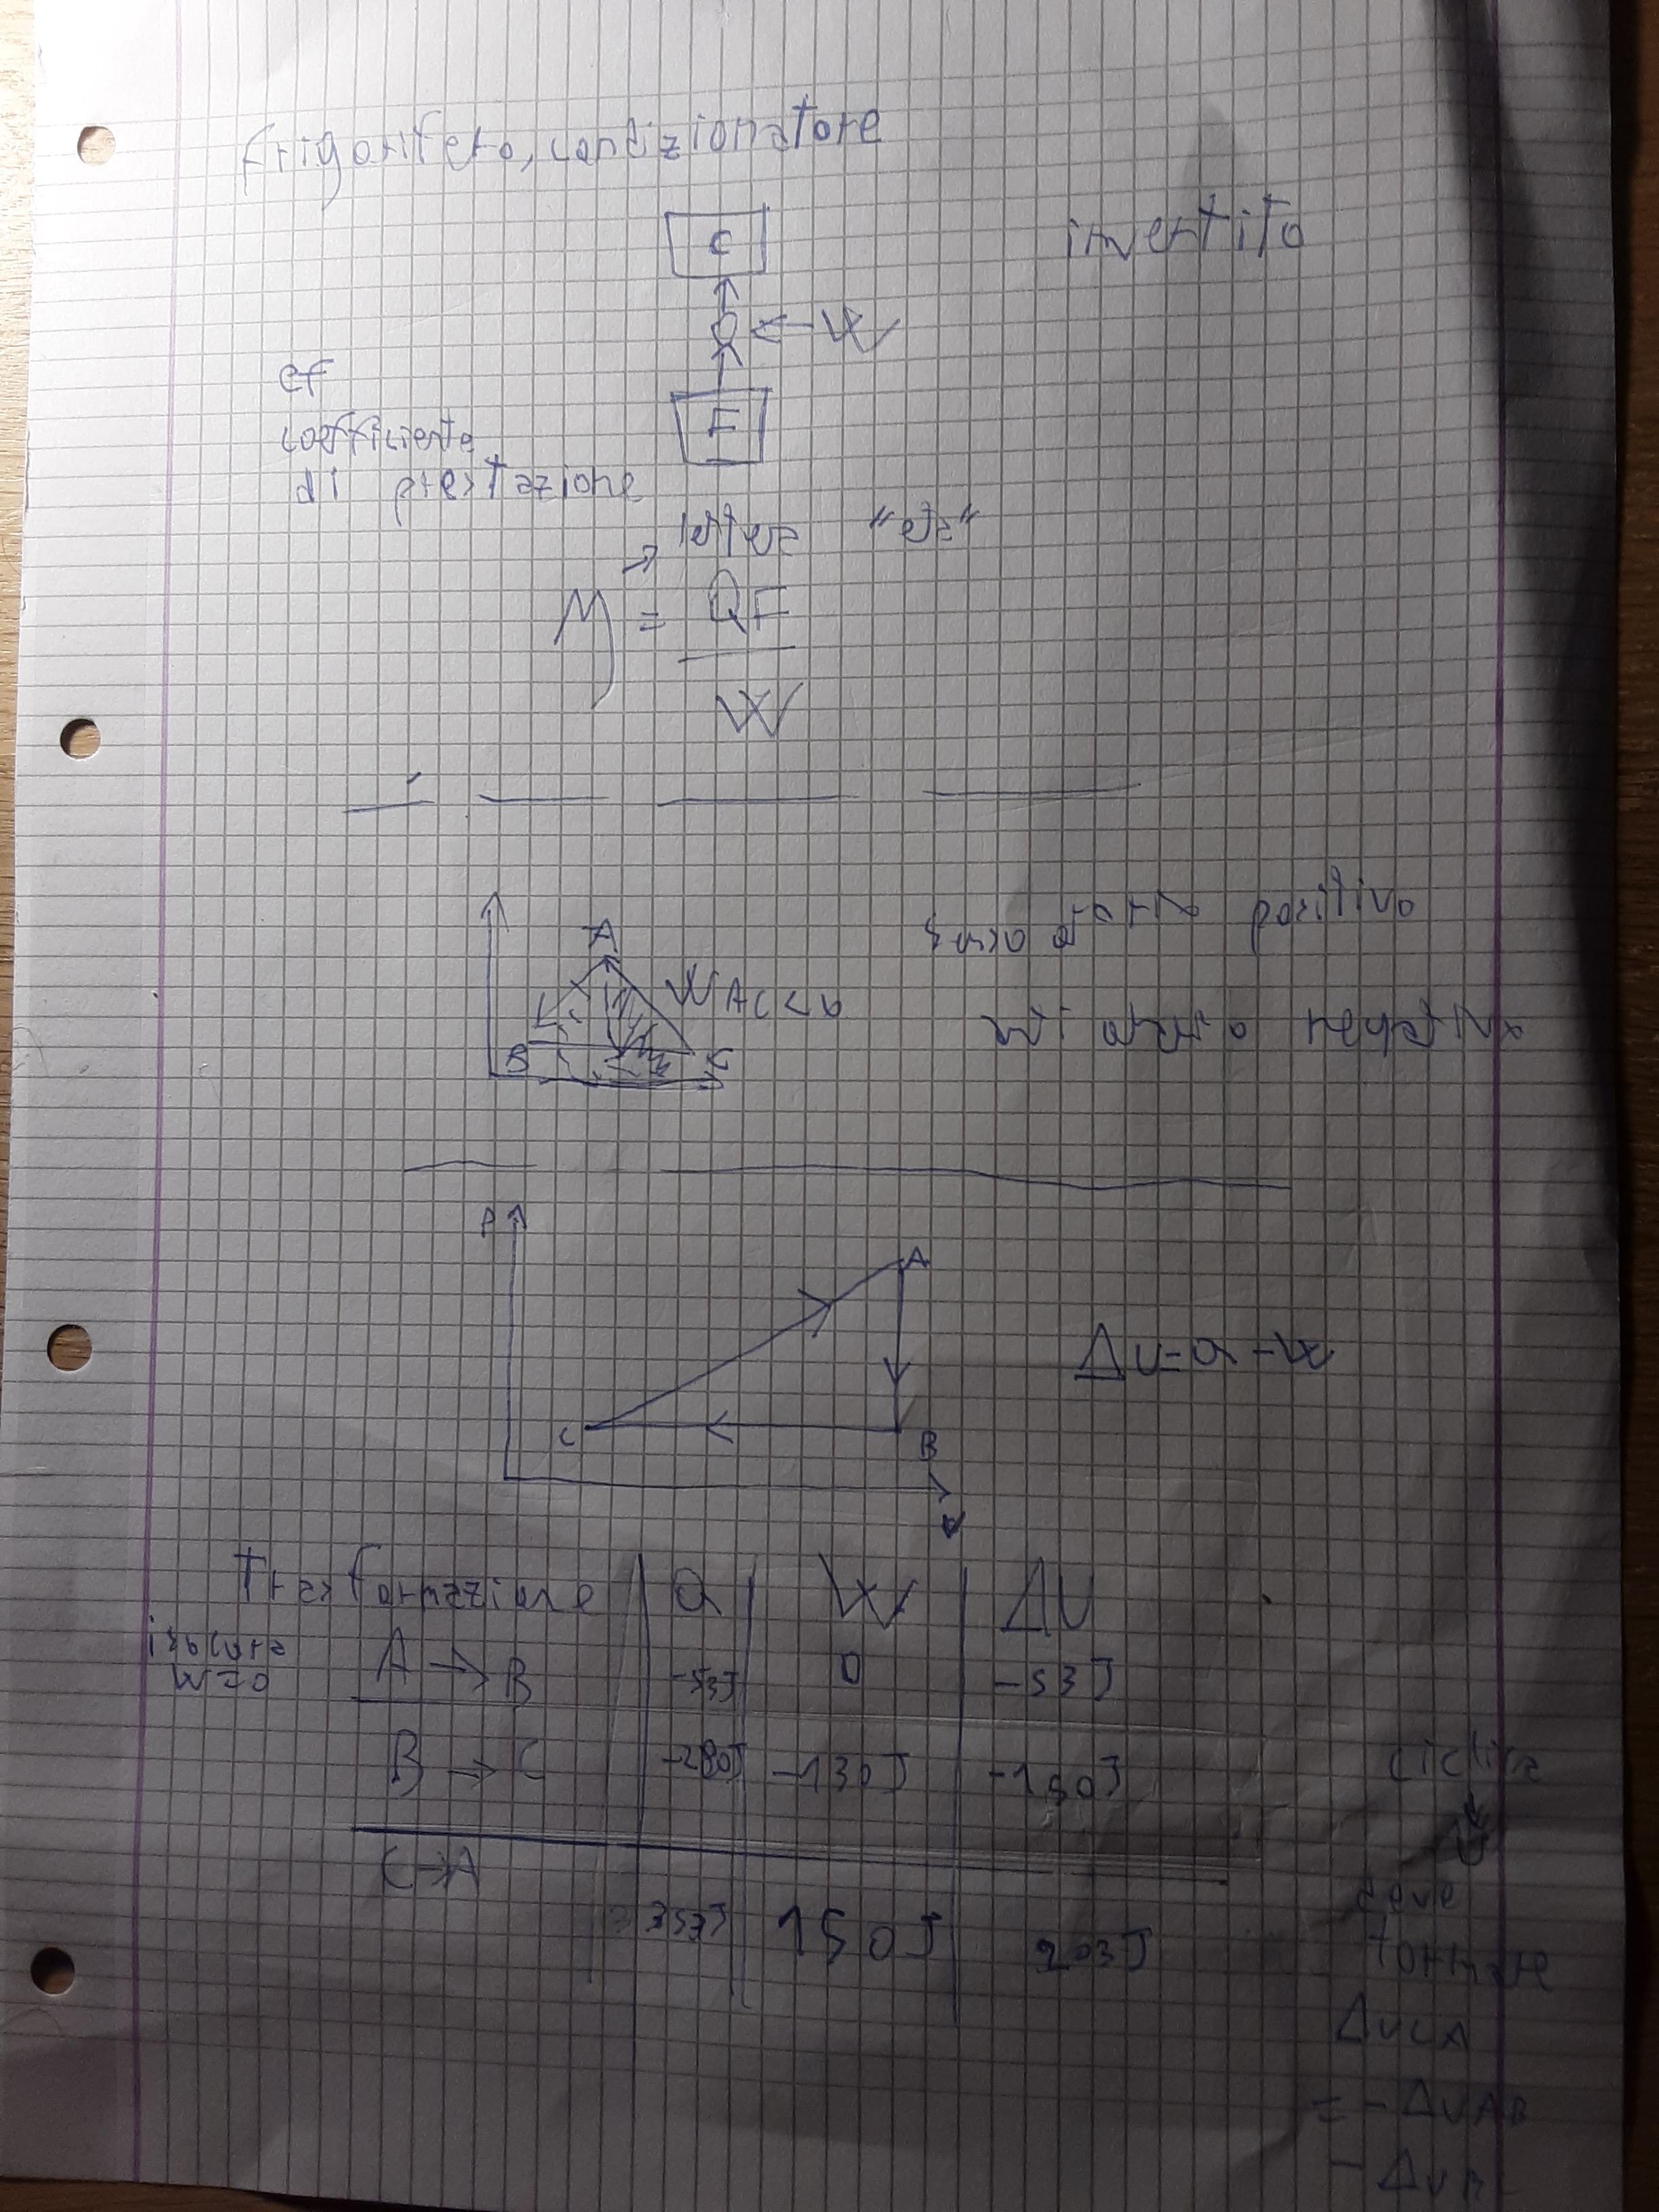 frigorifero, condizionatore
C
invertito
W
F
cf
coefficiente
di prestazione
lettera "eta"
η = QF
W
A
WAC<0
B C
senso orario positivo
antiorario
P
A
ΔU=Q-W
C
B
V
Trasformazione Q W ΔU
isocora
W=0
A → B -53J 0 -53J
B → C -280J -130J -150J
ciclica
C→A
353J 150J 203J
deve
tornare
ΔUCA
= -ΔUAB
- ΔUBC